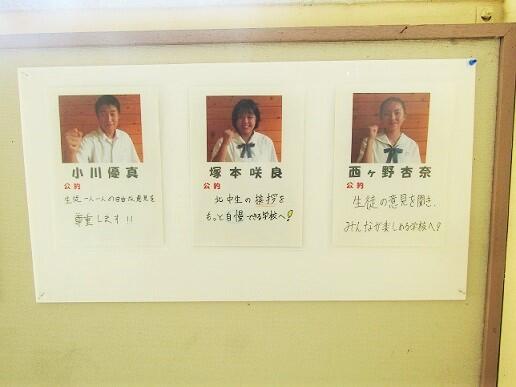 小川優真
公約
生徒一人一人の自由な意見を
尊重します!!
塚本咲良
公約
北中生の挨拶を
もっと自慢できる学校へ!
西ヶ野杏奈
公約
生徒の意見を聞き、
みんなが楽しめる学校へ!